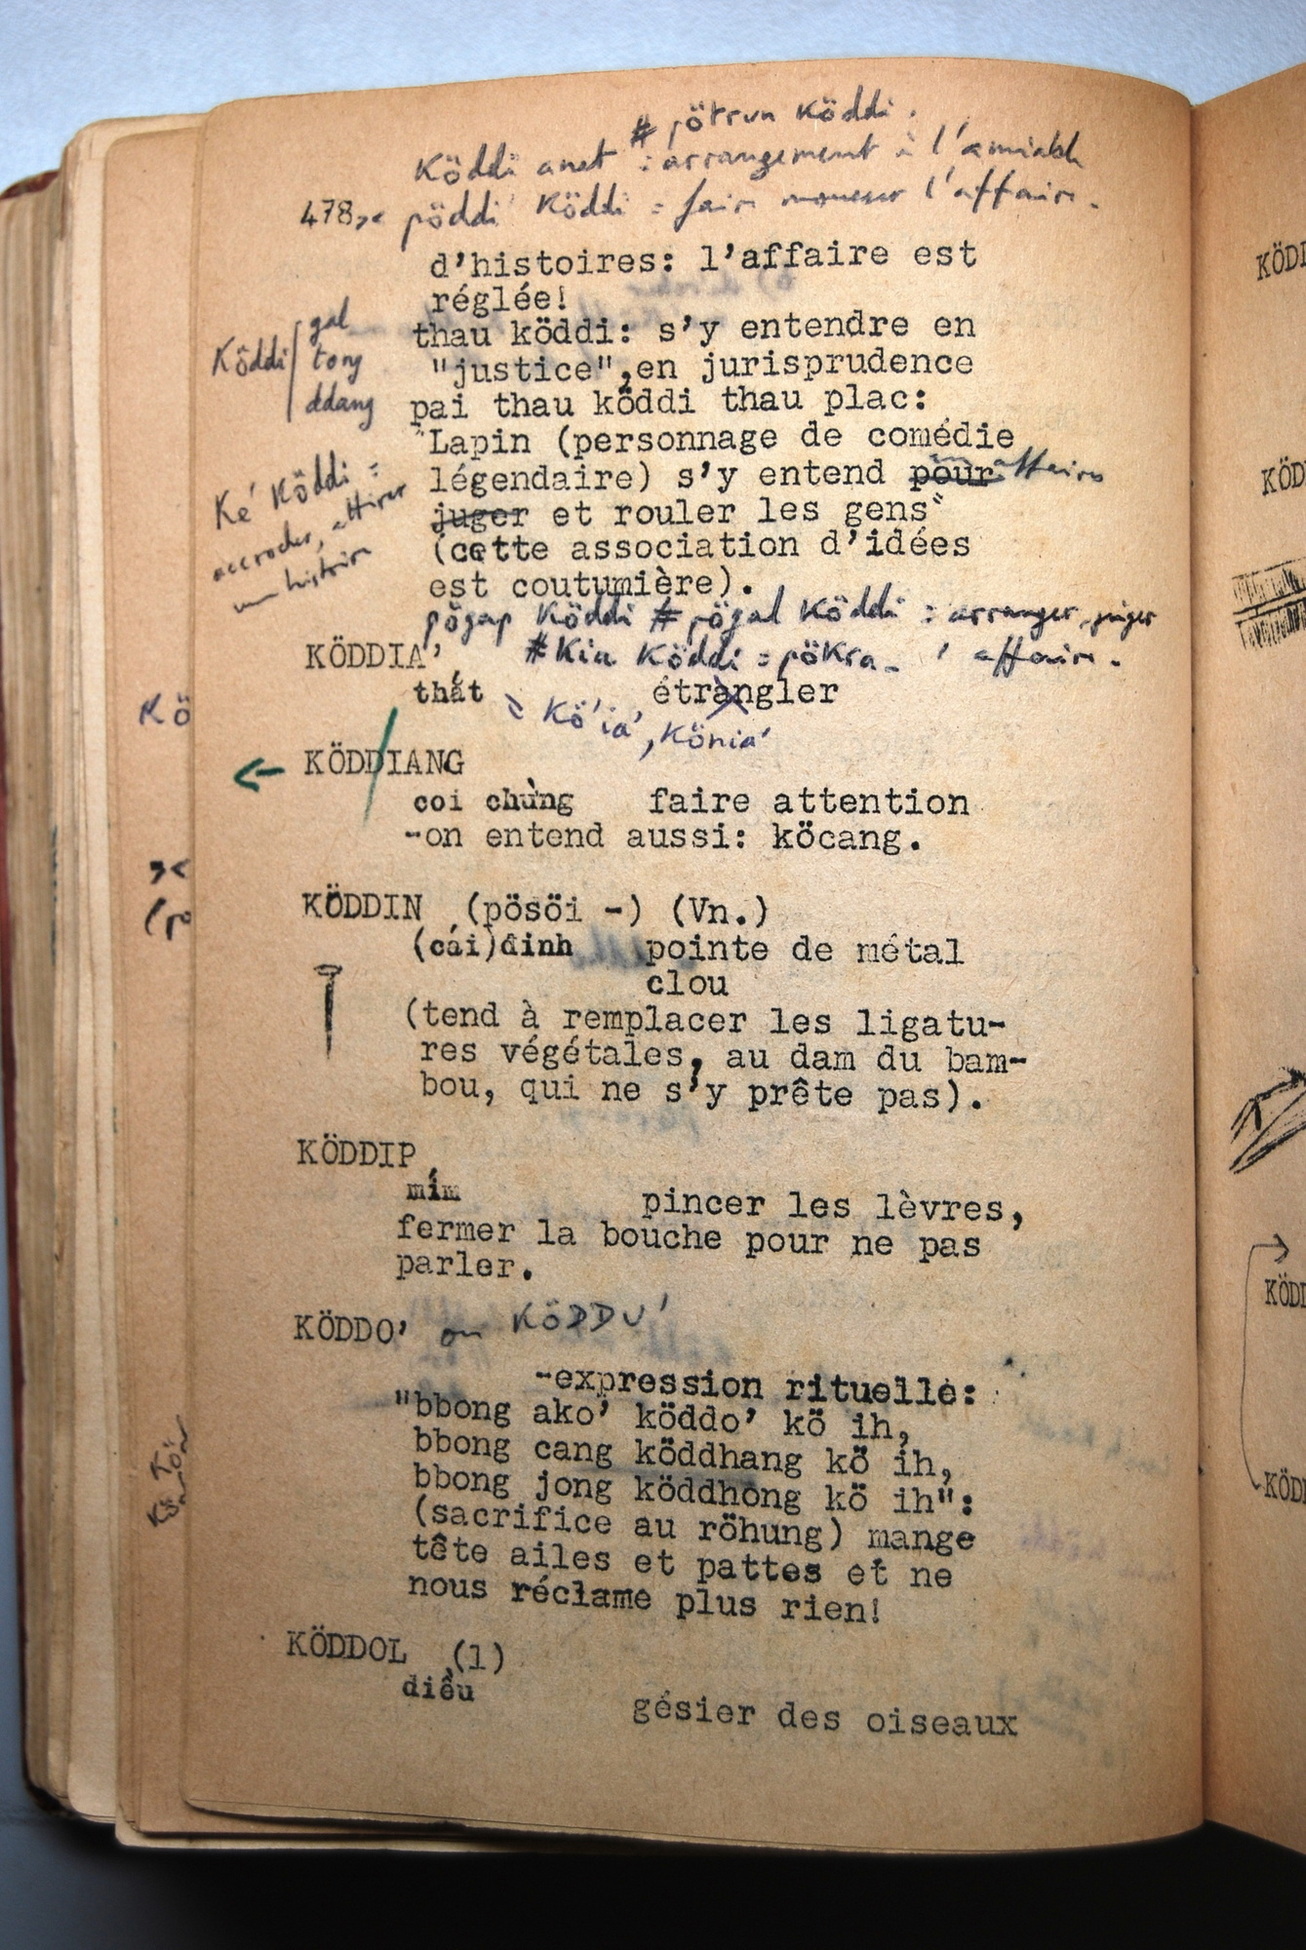 # pötrun Köddi.
Köddi anat : arrangement à l'amiable
478 pöddi Köddi = faire l'affaire.
d'histoires: l'affaire est
réglée!
thau köddi: s'y entendre en
"justice",en jurisprudence
pai thau köddi thau plac:
"Lapin (personnage de comédie
légendaire) s'y entend pour affaires
juger et rouler les gens"
(cette association d'idées
est coutumière).
Köddi gal
tong
ddang
Ké Köddi =
accrocher, attirer
une histoire
pögap Köddi # pögal Köddi : arranger, juger
# Kia Köddi = pökra - l'affaire.
KÖDDIA'
thắt étrangler
Kö'ia', Könia'
← KÖDDIANG
coi chừng faire attention
-on entend aussi: köcang.
KÖDDIN (pösöi -) (Vn.)
(cái)đinh pointe de métal
clou
(tend à remplacer les ligatu-
res végétales, au dam du bam-
bou, qui ne s'y prête pas).
KÖDDIP
mím pincer les lèvres,
fermer la bouche pour ne pas
parler.
KÖDDO' ou KÖDDU'
-expression rituelle:
"bbong ako' köddo' kö ih,
bbong cang köddhang kö ih,
bbong jong köddhong kö ih":
(sacrifice au röhung) mange
tête ailes et pattes et ne
nous réclame plus rien!
KÖDDOL (1)
diều
gésier des oiseaux
Kö